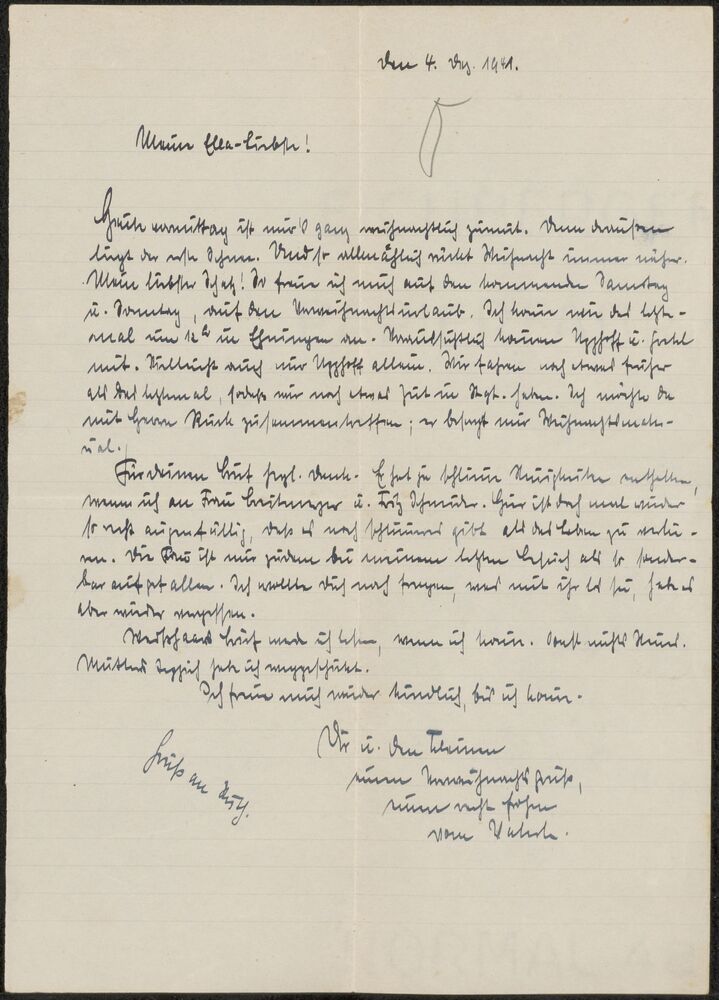 Den 4. Dez. 1941.
Meine Ella-Liebste!
Heute vormittag ist mir's ganz weihnachtlich zumut. Denn draußen
liegt der erste Schnee. Und so allmählich rückt Weihnacht immer näher.
Mein liebster Schatz! So freue ich mich auf den kommenden Samstag
u. Sonntag, auf den Vorweihnachtsurlaub. Ich komme wie das letzte-
mal um 12 h in Ehningen an. Voraussichtlich kommen u.
mit. Vielleicht auch nur allein. Wir fahren noch etwas früher
als das letztemal, sodaß wir noch etwas Zeit in Stgt. haben. Ich möchte da
mit Herrn Rück zusammentreffen; er besorgt mir Weihnachtsmate-
rial.
Für deinen Brief hzgl. Dank. Er hat ja schlimme Neuigkeiten enthalten,
wenn ich an Frau Breitmeyer u. Fritz Schneider. Hier ist doch mal wieder
so recht augenfällig, daß es noch schlimmeres gibt als das Leben zu verlie-
ren. Die Frau ist mir zudem bei meinem letzten Besuch als so sonder-
bar aufgefallen. Ich wollte dich noch fragen, was mit ihr los sei, habe es
aber wieder vergessen.
Brief werde ich lesen, wenn ich komme. Sonst nichts Neues.
Mutters Teppich habe ich weggeschickt.
Ich freue mich wieder kindlich, bis ich komme.
Dir u. den Kleinen
einen Vorweihnachtsgruß,
einen recht frohen
vom Vaterle.
Gruß an